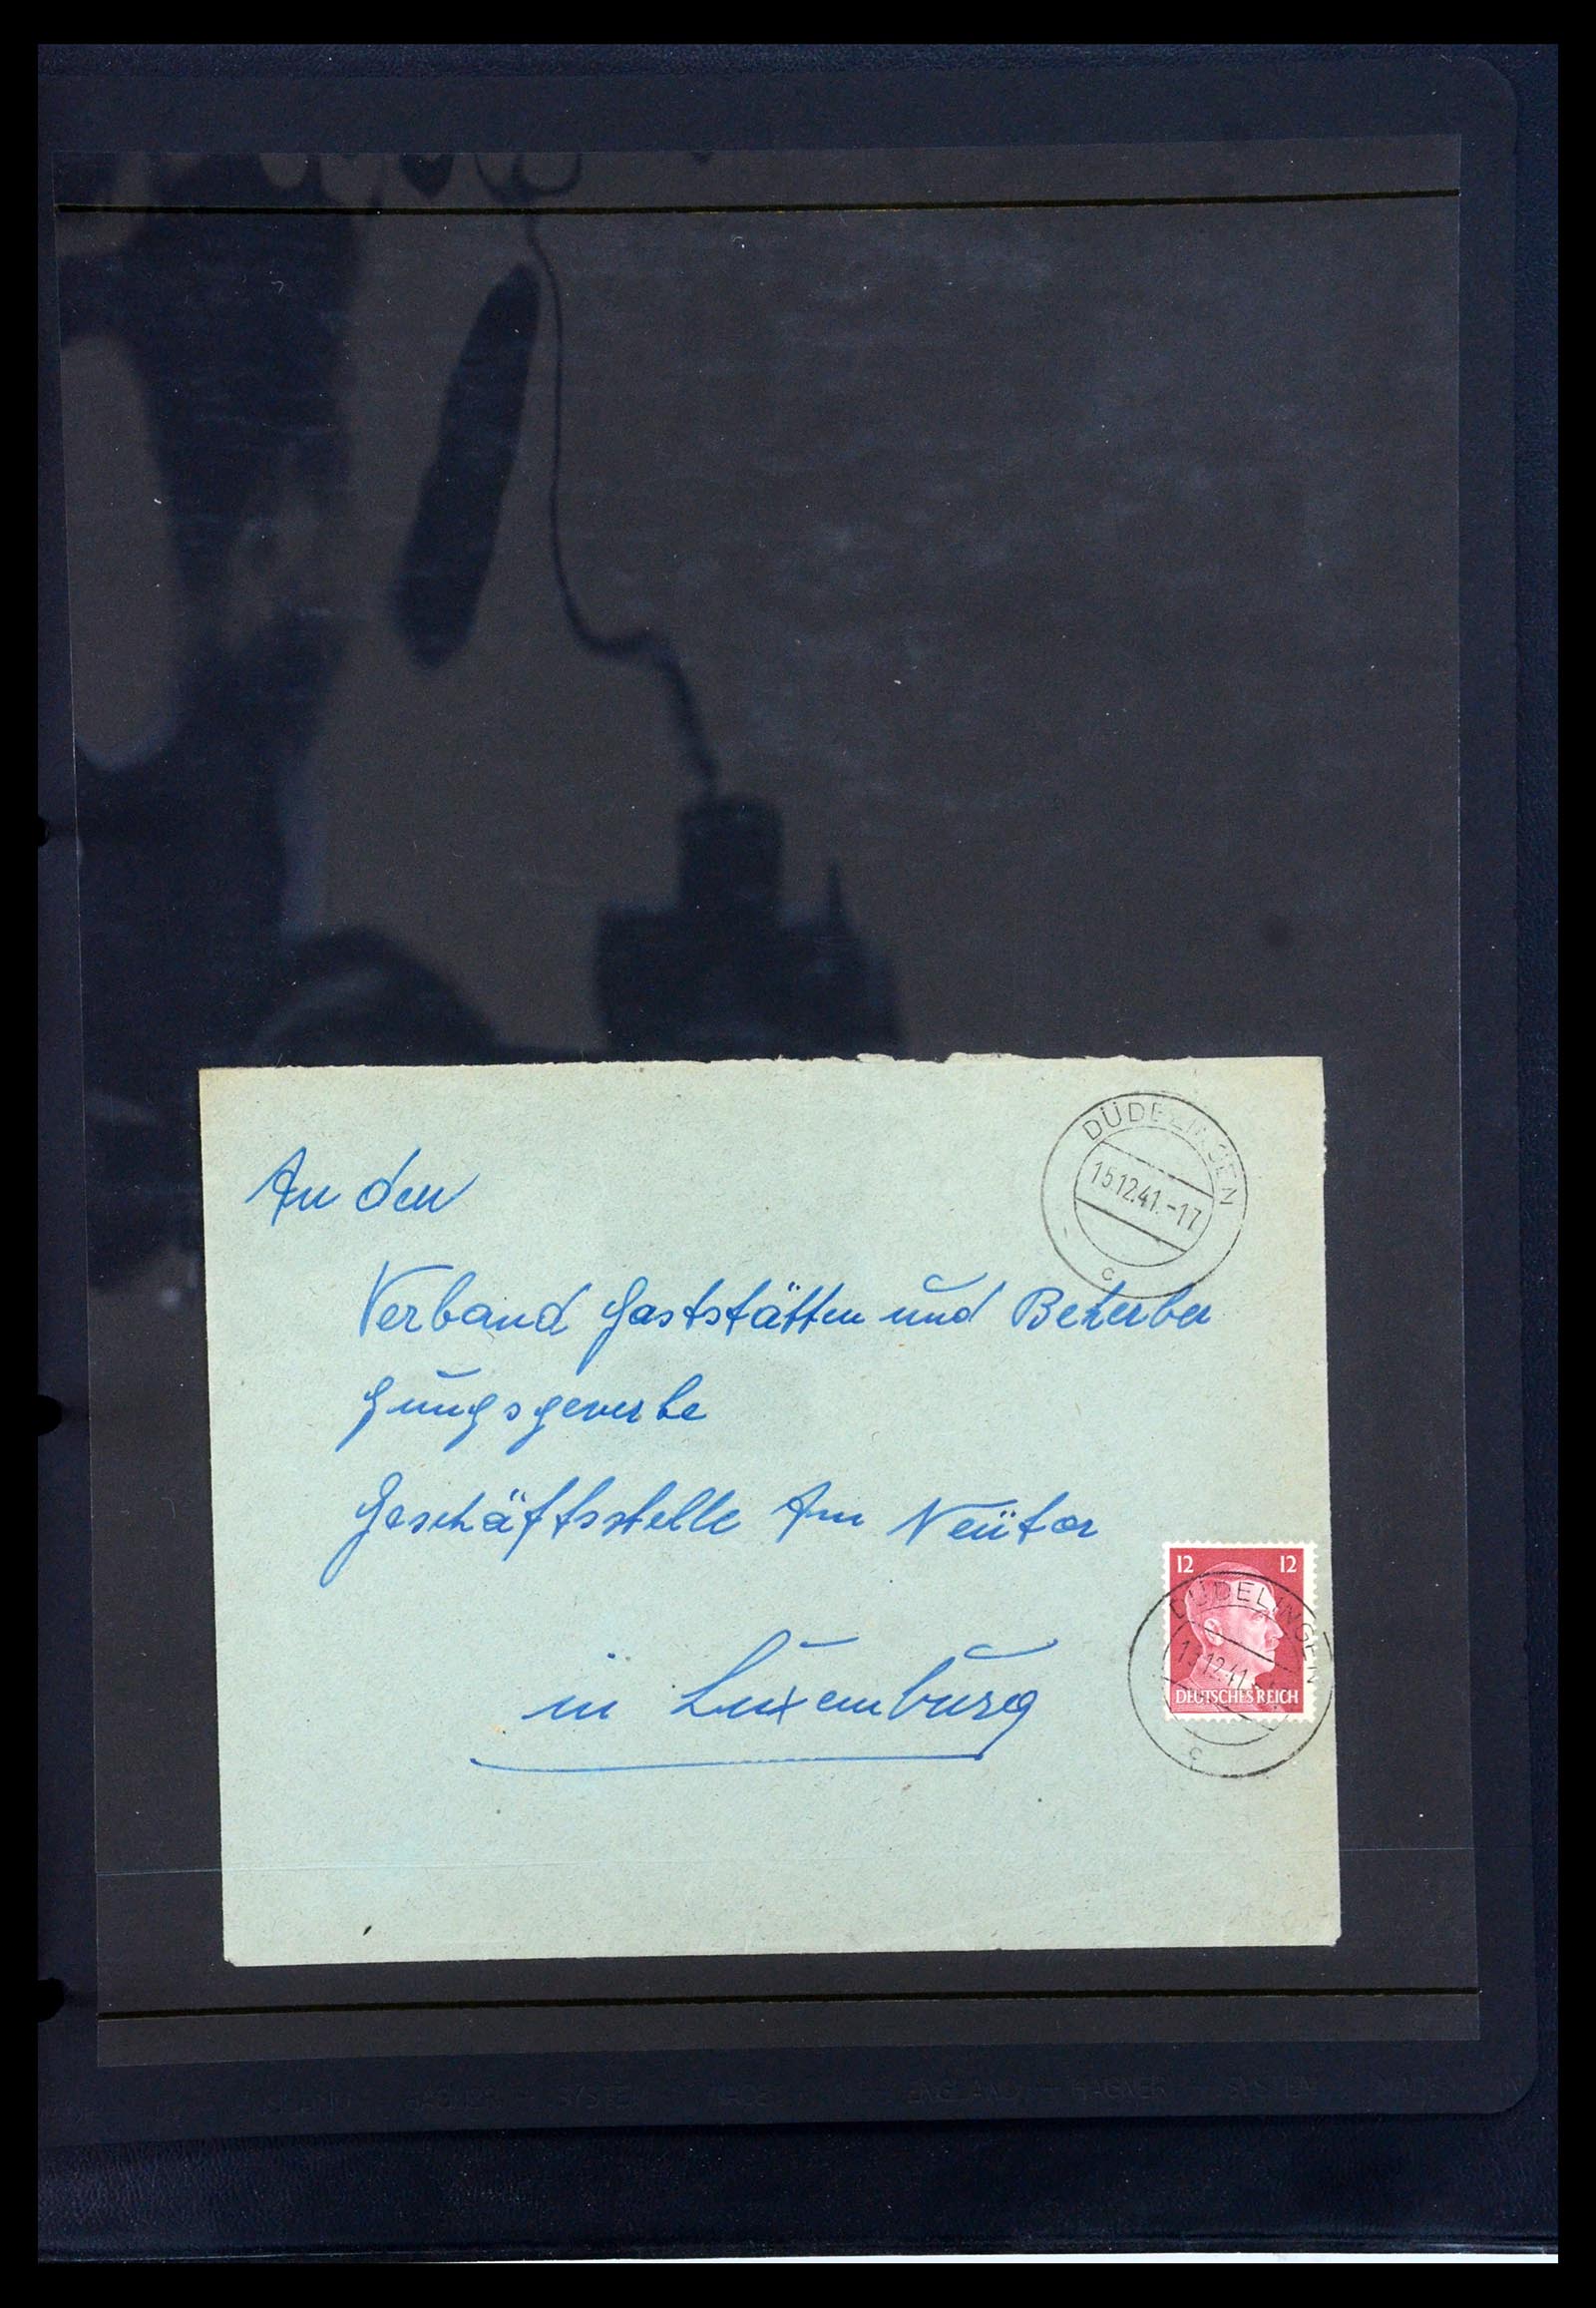 DÜDELINGEN
15.12.41.-17
c
An den
Verband Gaststätten und Beherber
gungsgewerbe
Geschäftsstelle Am Neütor
in Luxemburg
12 12
DEUTSCHES REICH
DÜDELINGEN
c
HAGNER
ENGLAND HAGNER